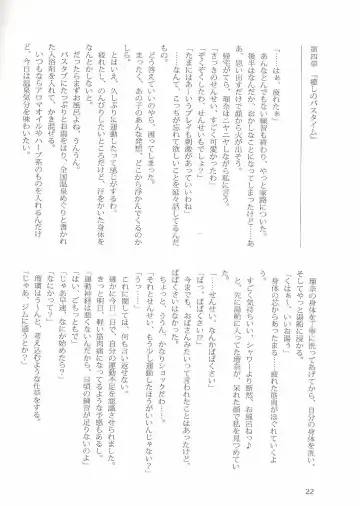 第四章　『癒しのバスタイム』
「……はぁ、疲れたぁ」
あんなとんでもない練習も終わり、やっと家路についた。
後半はなんだか、おかしなことになってしまったけど……あ
あ、思い出すだけで顔から火が出そう。
帰宅がてら、瑠奈はニヤニヤしながら私に言う。
「さっきのせんせい、すごく可愛かったわ」
「ぞくぞくしたわね、せんせいもでしょ？」
「たまにはあーいうプレイも刺激があっていいわね」
なんて、こっちが忘れて欲しいことを延々話してるんだ
から、困ってしまう。
どう答えていいのやら、
多彩すぎるあの子のあんな発想、どこから浮かんでくるのか
しら？
とはいえ、久しぶりに運動したって感じがするわ。
疲れたし、のんびりしたいところだけど、汗をかいた身体を
なんとかしないと。
だったらまずお風呂よね、うんうん。
バスタブにたっぷりとお湯をはり、全国温泉めぐりと書かれ
た入浴剤を入れて、かき混ぜる。
いつもならアロマオイルやハーブ系のものを入れるんだけ
ど、今日は温泉気分を味わいたい。
瑠奈の身体を丁寧に洗ってあげてから、自分の身体を洗い、
そしてやっと湯船に浸かる。
「くはぁ〜、いいお湯う」
身体の芯からあったまる……疲れた筋肉がほぐれていくよ
う。
すごく気持ちいい、シャワーより断然、お風呂派ね♪
と、先に湯船に入ってた瑠奈が、呆れた顔で私を見つめてい
た。
「せんせい、なんかばばくさい」
「ばっ、ばばくさい!?」
今までも、おばさんみたいって言われたことはあったけど、
ばばくさいはなかった。
ちょっと、ううん、かなりショックだわ……。
「それとせんせい、もう少し運動したほうがいいんじゃない？」
「うっ……」
これに関しては、何も言い返せない。
確かに今日一日で、自分の運動不足を意識させられました。
きっと明日、軽い筋肉痛になってるような予感もあるし。
「運動神経は悪くないんだから、日頃の練習が足りないのよ」
「はい、ごもっともで」
「じゃあ早速、なにか始めたら？」
「なにかって？」
瑠璃はう〜んと、考え込むような仕草をする。
「じゃあ、ジムに通うとか？」
22